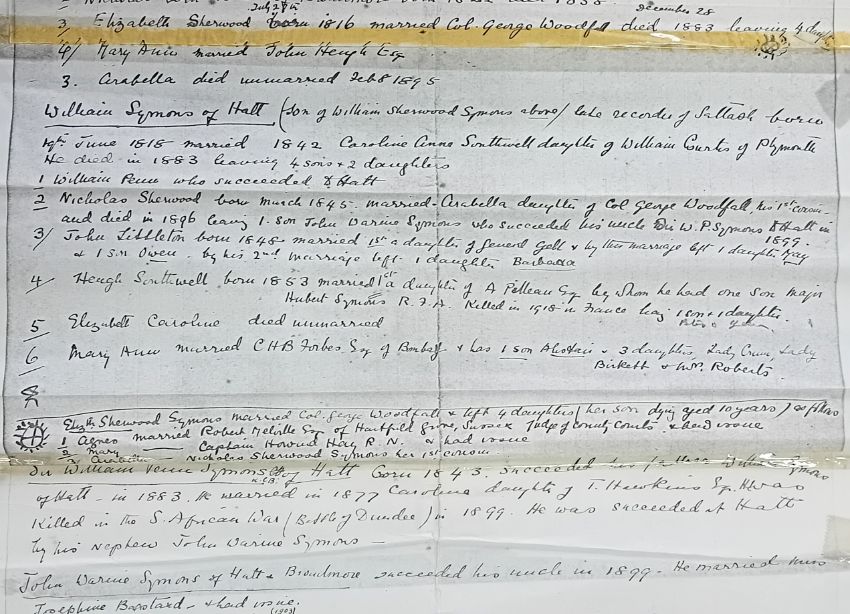 July 27th December 28
3 Elizabeth Sherwood born 1816 married Col. George Woodfall died 1883 leaving 4 daughters
4/ Mary Ann married John Hengh Esq
3. Arabella died unmarried Feb 8 1895
William Symons of Hatt (son of William Sherwood Symons above) late recorder of Saltash born
19th June 1818 married 1842 Caroline Anne Southwell daughter of William Curtis of Plymouth
He died in 1883 leaving 4 sons + 2 daughters
1 William Penn who succeeded to Hatt
2 Nicholas Sherwood born March 1845 married Arabella daughter of Col George Woodfall, his 1st cousin
and died in 1896 leaving 1 son John Warine Symons who succeeded his uncle Sir W. P. Symons to Hatt in
1899.
3/ John Littleton born 1848 married 1st a daughter of General Gall & by this marriage left 1 daughter May
& 1 son Owen. by his 2nd marriage left 1 daughter Barbara
4/ Hengh Southwell born 1853 married 1st a daughter of A Pelleau Esq by whom he had one son Major
Hubert Symons R.F.A. Killed in 1918 in France leaving 1 son + 1 daughter.
5 Elizabeth Caroline died unmarried
6 Mary Ann married C H B Forbes Esq of Bombay & has 1 son Alistair & 3 daughters, Lady Crump, Lady
Birkett & Mrs. Roberts.
Elizth Sherwood Symons married Col. George Woodfall & left 4 daughters (her son dying aged 10 years) as follows
1 Agnes married Robert Melville Esq of Hartfield Grove, Sussex Judge of County Courts & had issue
2 Mary — Captain Howard Hay R.N. & had issue
3 Arabella Nicholas Sherwood Symons her 1st cousin
Sir William Penn Symons K.C.B. of Hatt Born 1843. Succeeded his father William Symons
of Hatt - in 1883. He married in 1877 Caroline daughter of T. Hawkins Esq. He was
Killed in the S. African War (Battle of Dundee) in 1899. He was succeeded at Hatt
by his Nephew John Warine Symons —
John Warine Symons of Hatt & Broadmoor succeeded his uncle in 1899 - He married Miss
Josephine Bastard - & had issue.
(1903)